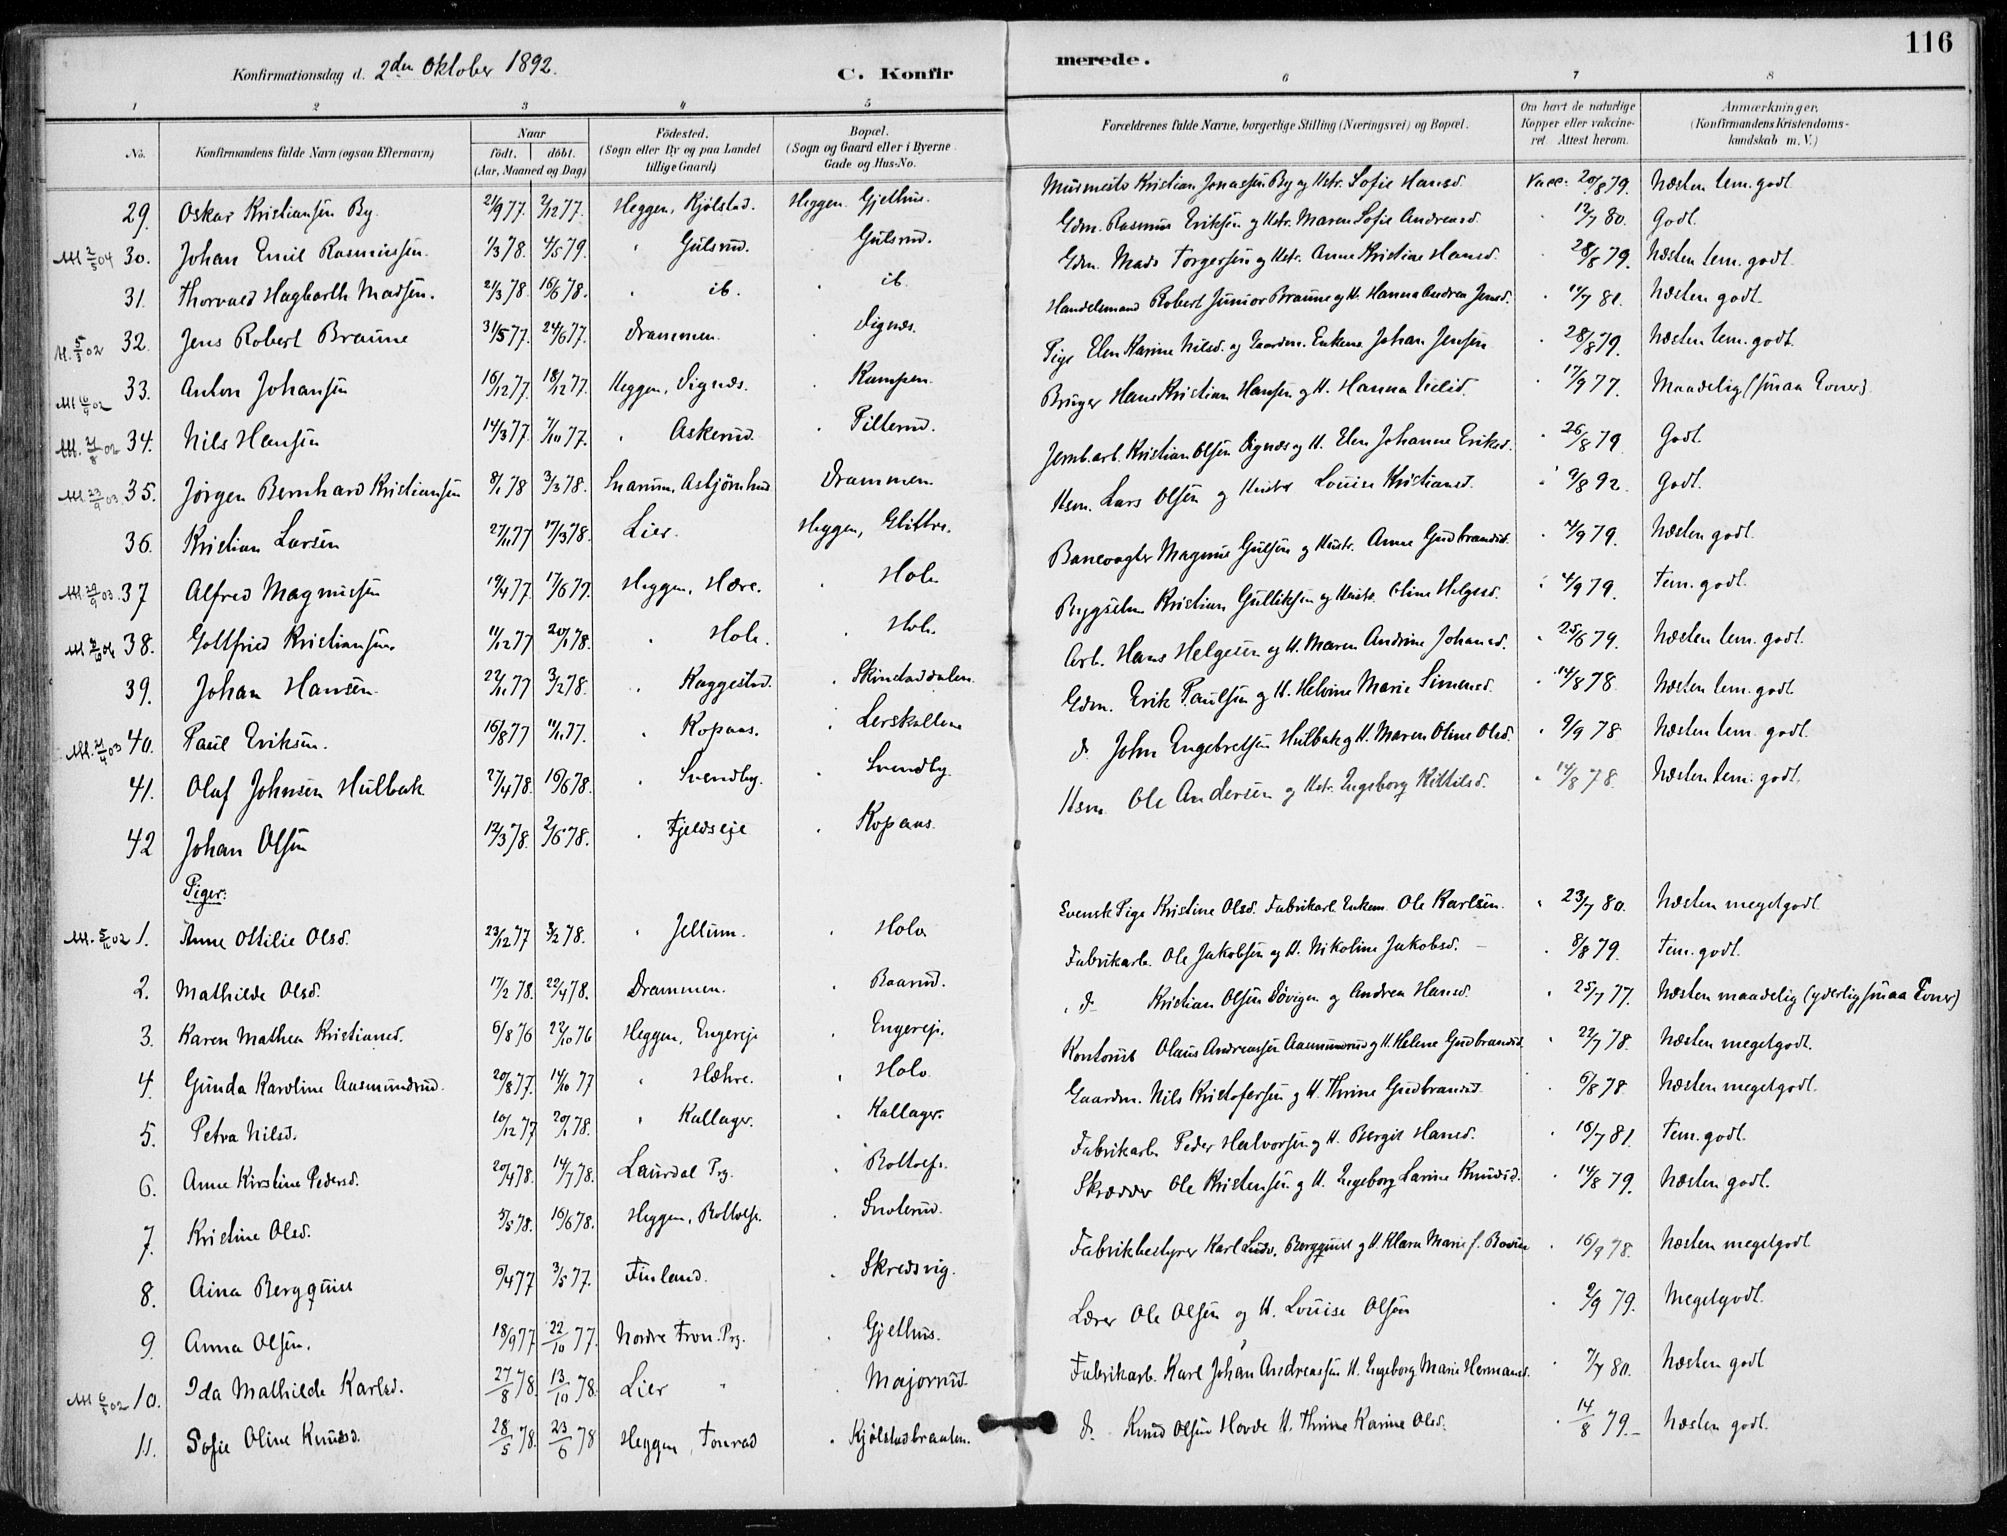 116
Konfirmationsdag d. 2den Oktober 1892. C. Konfirmerede.
1 2 3 4 5 6 7 8
No. Konfirmandens fulde Navn (ogsaa Efternavn) Naar födt. döbt. (Aar, Maaned og Dag) Födested. (Sogn eller By og paa Landet tillige Gaard) Bopæl. (Sogn og Gaard eller i Byerne Gade og Hus-No. Forældrenes fulde Navne, borgerlige Stilling (Næringsvei) og Bopæl. Om havt de naturlige Kopper eller vakcineret. Attest herom. Anmærkninger. (Konfirmandens Kristendomskundskab m. V.)
29. Oskar Kristiansen By. 21/9 77. 2/12 77. Heggen, Kjölstad. Heggen Gjethus. Kristian Jonassen By og Hstr. Sofie Hansd. Vacc. 20/8 79. Næsten tem. godt
30. Johan Emil Rasmussen. 1/3 78. 4/5 79. " Gulsrud. " Gulsrud. Gdm. Rasmus Eriksen og Hstr. Maren Sofie Andreasd. " 12/7 80. Godt.
31. Thorvald Hagbarth Madsen. 21/3 78. 16/6 78. " ib. " ib. Gdm. Mads Torgersen og Hstr. Anne Kristine Hansd. " 28/8 79. Næsten tem. godt.
M. 5/3 02 32. Jens Robert Braune 31/5 77. 24/6 77. Drammen. " Vignæs. Handelsmand Robert Junior Braune og H. Hanna Andrea Jensd. " 11/7 81. Næsten godt.
33. Anton Johansen 16/12 77. 18/12 77. Heggen, Vignæs. " Kampen. Pige Elen Karine Nilsd. og Gaardm. Enkem. Johan Jensen " 28/8 79. Næsten tem. godt.
34. Nils Hansen 14/3 77. 7/10 77. " Askerud. " Pilterud. Bruger Hans Kristian Hansen og H. Hanna " 17/9 77. Maadelig (smaa Evner).
M. 23/9 03. 35. Jörgen Bernhard Kristiansen 8/1 78 3/3 78. Snarum, Asbjörnhud Drammen Jernb.arb. Kristian Olsen Vignæs og H. Elen Johanne Eriksd. " 26/8 79. Godt
36. Kristian Larsen 27/11 77 17/3 78. Lier. Heggen, Glittre. Hsm. Lars Olsen og Hustr Louise Kristiansd. " 9/8 92. Godt.
37 Alfred Magnussen 19/4 77. 17/6 79. Heggen, Hære. " Hole Banevogter Magnus Gulsen og Hustr. Anne Gudbrandsd. " 4/9 79. Næsten godt.
38. Gottfried Kristiansen. 11/12 77 20/1 78. " Hole. " Hole. Bygselm. Kristian Gulliksen og Hustr. Oline Helgesd. " 4/9 79. Tem. godt.
39. Johan Hansen. 22/11 77 3/2 78. " Kaggestad. " Skinstaddalen. Arb. Hans Helgesen og H. Maren Andrine Johansd. " 25/6 79. Næsten tem. godt.
M. 21/4 03 40. Paul Eriksen. 16/8 77 11/11 77. " Kopaas. " Lerskallen Gdm. Erik Paulsen og H. Helvine Marie Simensd. " 14/8 78. Næsten tem. godt
41. Olaf Johnsen Hulbak 27/4 78. 16/6 78. " Svendby. " Svendby. do John Engebretsen Hulbak og H. Maren Oline Olsd. " 9/9 78 Næsten tem. godt.
42 Johan Olsen 12/3 78. 2/6 78. " Fjeldseje " Kopaas. Hsm. Ole Andersen og Hstr. Ingeborg Kittilsd. " 14/8 78. Næsten tem. godt.
Piger:
M. 5/11 02 1. Anne Ottilie Olsd. 23/12 77 3/2 78. " Jellum. " Holo Svensk Pige Kristine Olsd. Fabrikarb. Enkem. Ole Karlsen. " 23/7 80. Næsten megetgodt
2. Mathilde Olsd. 17/2 78. 22/4 78. Drammen. " Baarud. Fabrikarb. Ole Jakobsen og H. Nikoline Jakobsd. " 8/8 79. Tem. godt.
3. Karen Mathea Kristiansd. 6/8 76 22/10 76 Heggen, Engereje " Engereje. do Kristian Olsen Dövigen og Andrea Hansd. " 25/7 77. Næsten maadelig (yderlig smaa Evner)
4. Gunda Karoline Aasmundrud. 20/8 77. 14/10 77 " Hæhre. " Holo Kontorist Olaus Andreassen Aasmundrud og H. Helene Gudbrandsd. " 22/7 78. Næsten megetgodt.
5. Petra Nilsd. 10/12 77 20/1 78. " Kallager. " Kallager. Gaardm. Nils Kristofersen og H. Thrine Gudbrandsd. " 6/8 78. Næsten megetgodt.
6. Anne Kirstine Pedersd. 20/4 78. 14/7 78. Laurdal Prg. " Boltoef. Fabrikarb. Peder Halvorsen og H. Bergit Hansd. " 16/7 81. Tem. godt.
7. Kristine Olsd. 5/5 78. 16/6 78. Heggen, Boltoef. " Snoterud. Skrædder Ole Kristensen og H. Ingeborg Larine Knudsd. " 14/8 79. Næsten godt.
8. Aina Bergquist 6/4 77 3/5 77. Finland. " Skredsvig. Fabrikbestyrer Karl Ludv. Bergquist og H. Klara Marie f. " 16/9 78. Næsten megetgodt
9. Anna Olsen. 18/9 77 22/10 77. Nordre Fron. Prg. " Gjethus. Lærer Ole Olsen og H. Louise Olsen " 2/9 79. Megetgodt.
M 6/5 02 10. Ida Mathilde Karlsd. 27/8 78. 13/10 78. Lier " " Majorrud Fabrikarb. Karl Johan Andreassen H. Ingeborg Marie Hermansd. " 7/7 80. Næsten godt
11. Sofie Oline Knudsd. 28/5 78. 23/6 78 Heggen, Fonrud " Kjölstadbraaten. do Knud Olsen Hovde H. Thrine Karine Olsd. " 14/8 79. Næsten godt.